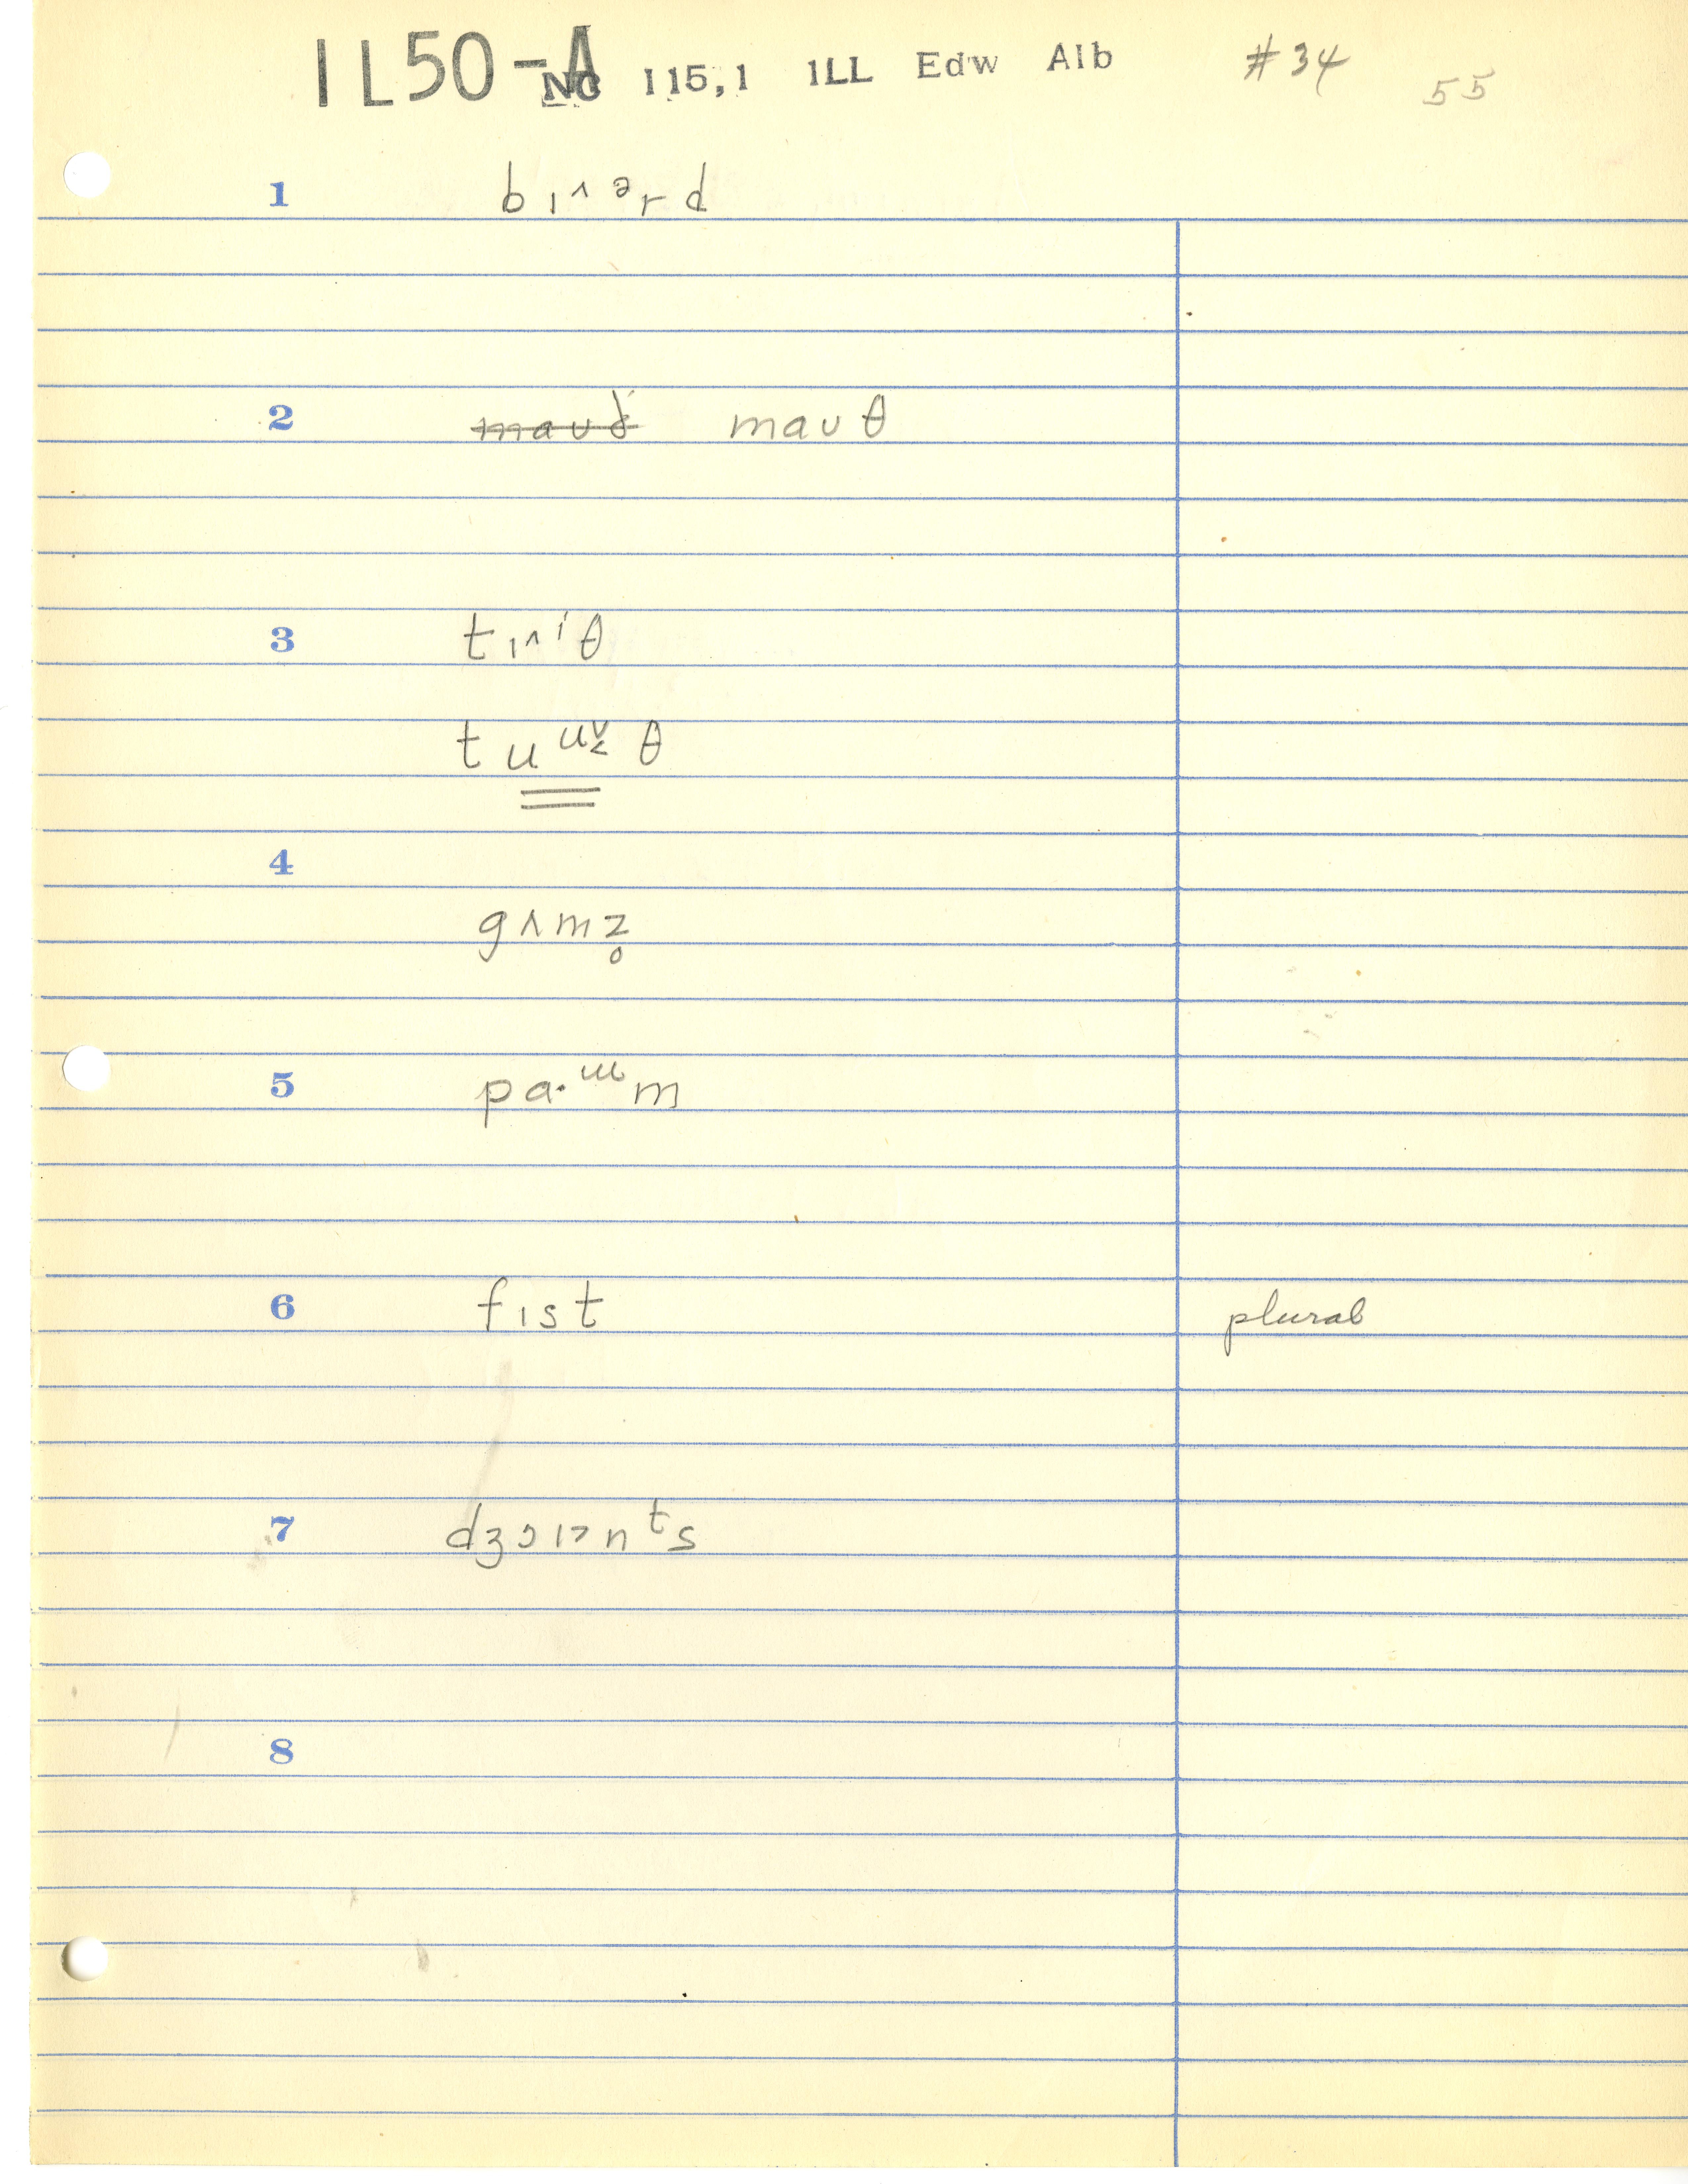 IL50-A NC 115,1 ILL Edw Alb #34 55
1 bɪ˄ərd
2 mauθ
3 tɪ˄ˡθ
tuᵘ˯θ
4
gʌmz̥
5 pɑ·ᵚm
6 fɪst plural
7 dʒɔɪ˃nᵗs
8